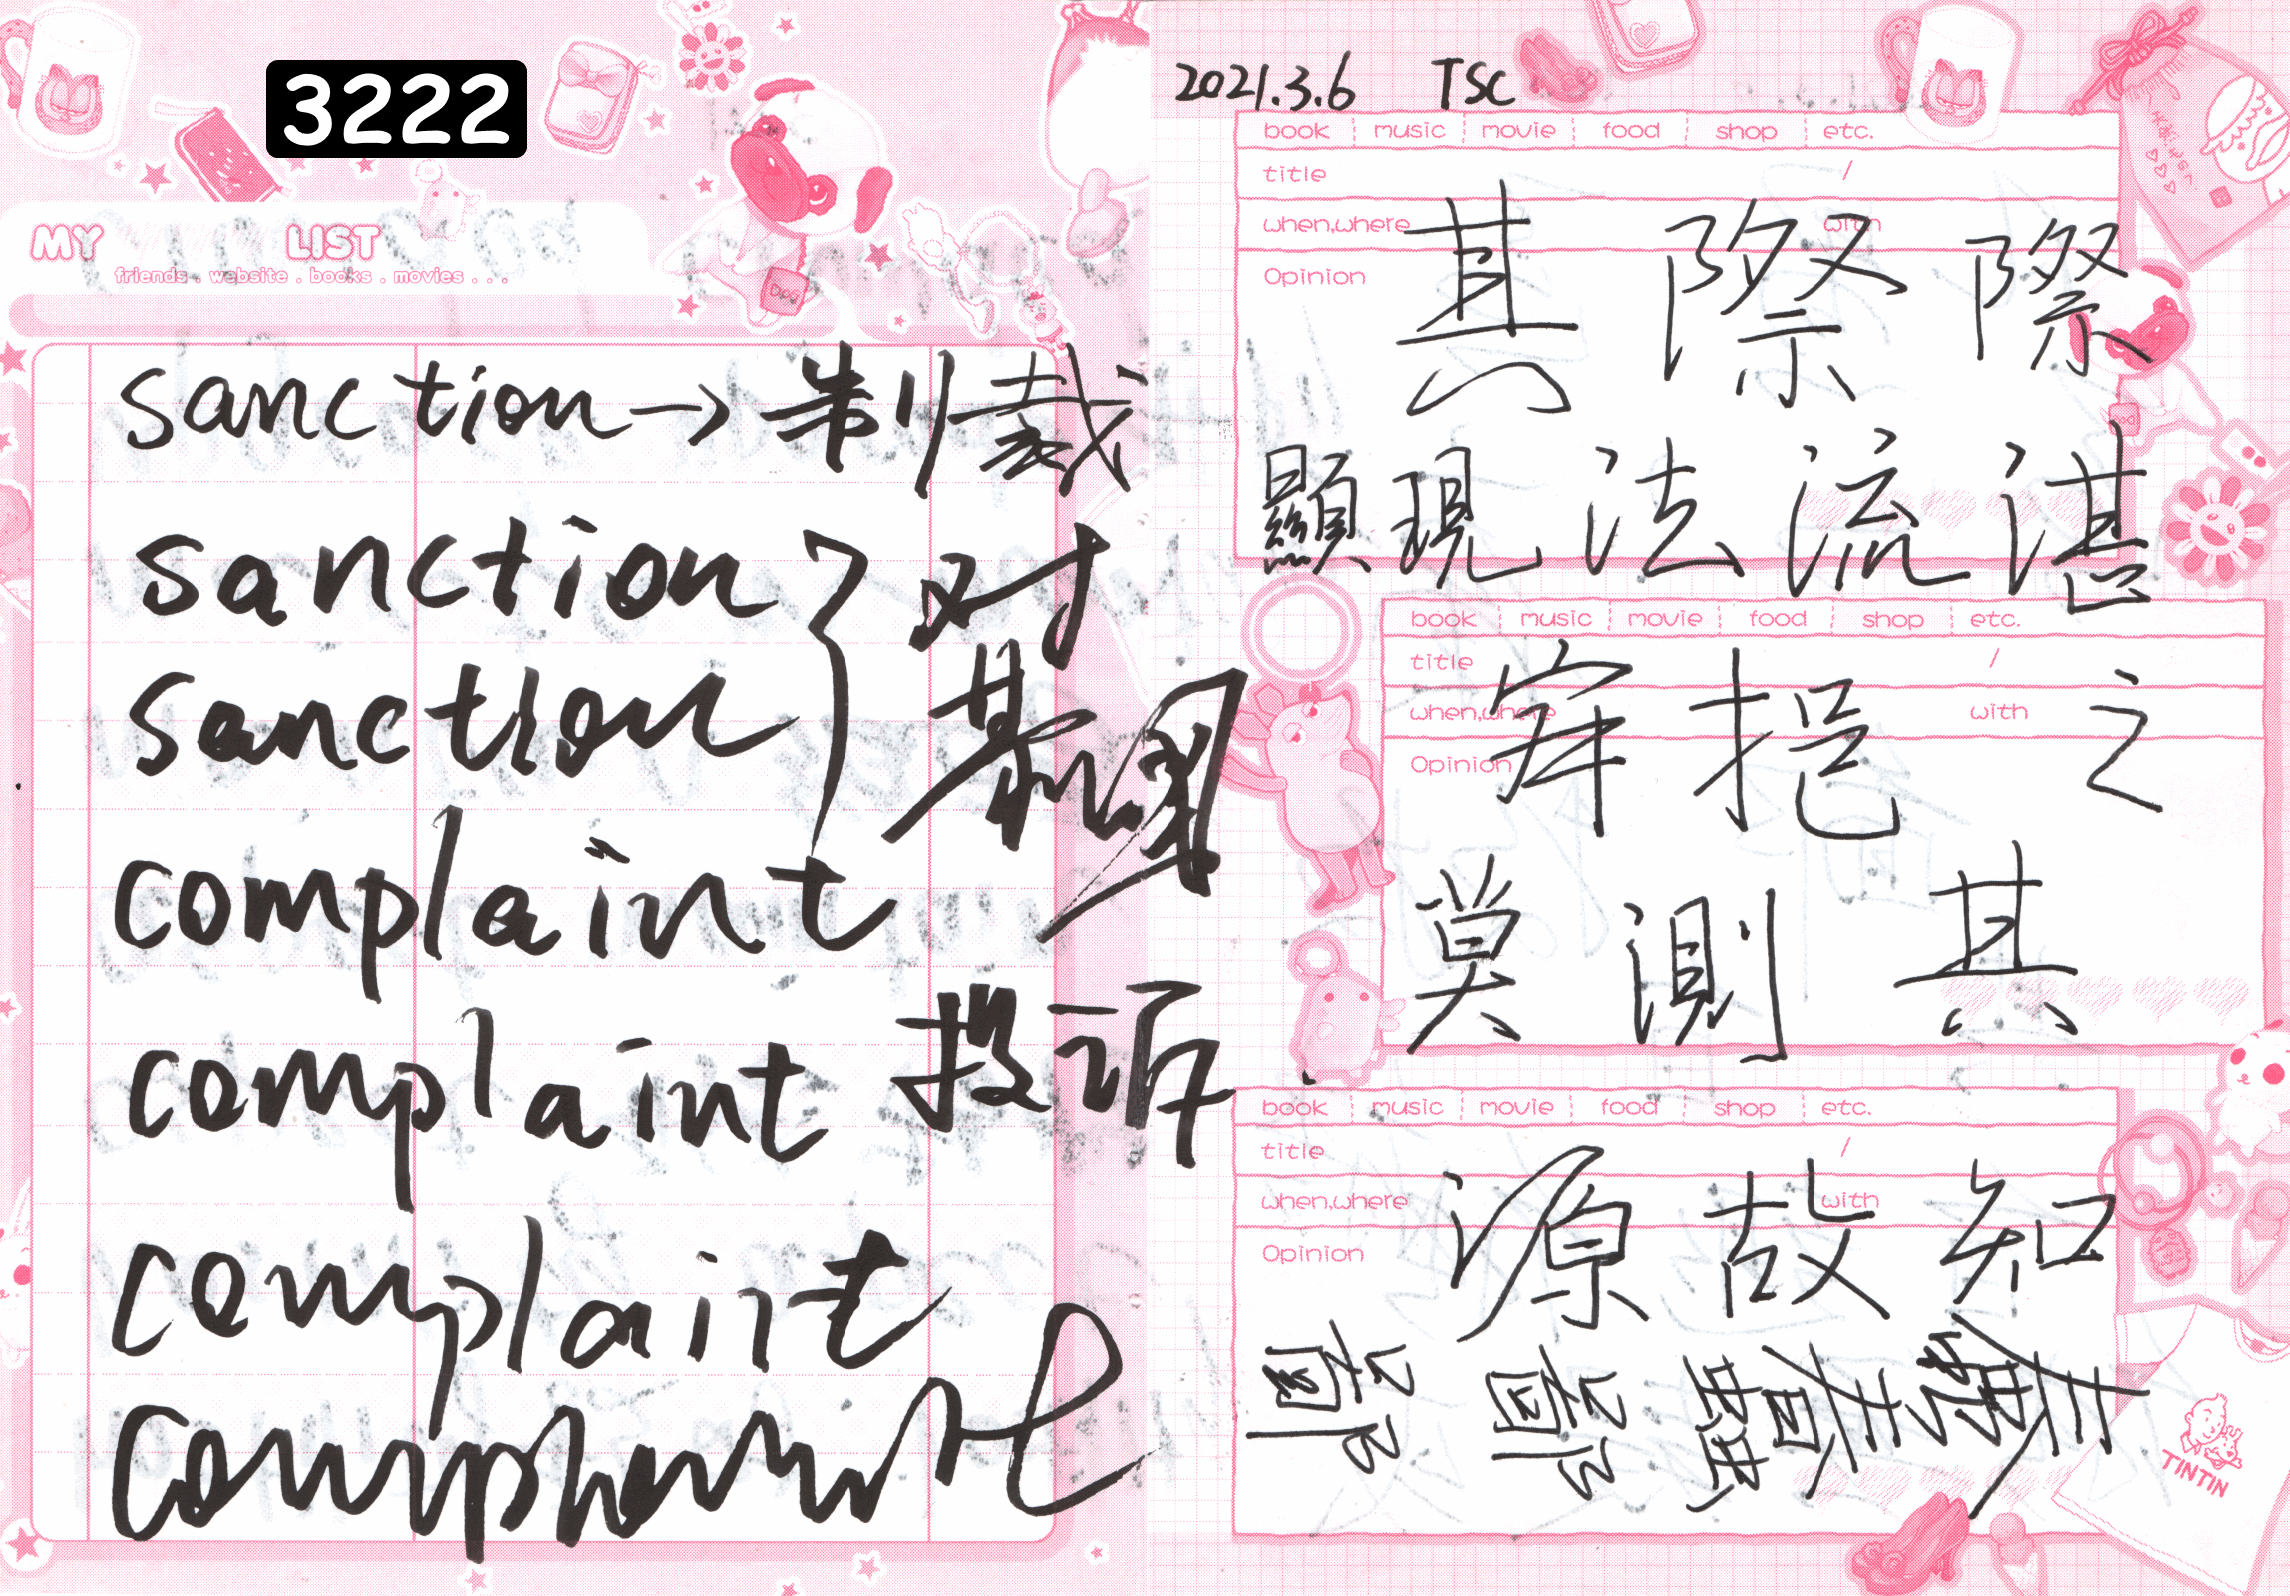 3222
MY LIST
friends . website . books . movies . . .
sanction → 制裁
sanction } 对
sanction 某国
complaint
complaint 投诉
complaint
2021.3.6 TSC
book music movie food shop etc.
title /
when,where with
Opinion
其 際 際
顯 現 法 流 湛
book music movie food shop etc.
title /
when,where with
Opinion
穽 挹 之
莫 測 其
book music movie food shop etc.
title /
when,where with
Opinion
源 故 知
TINTIN